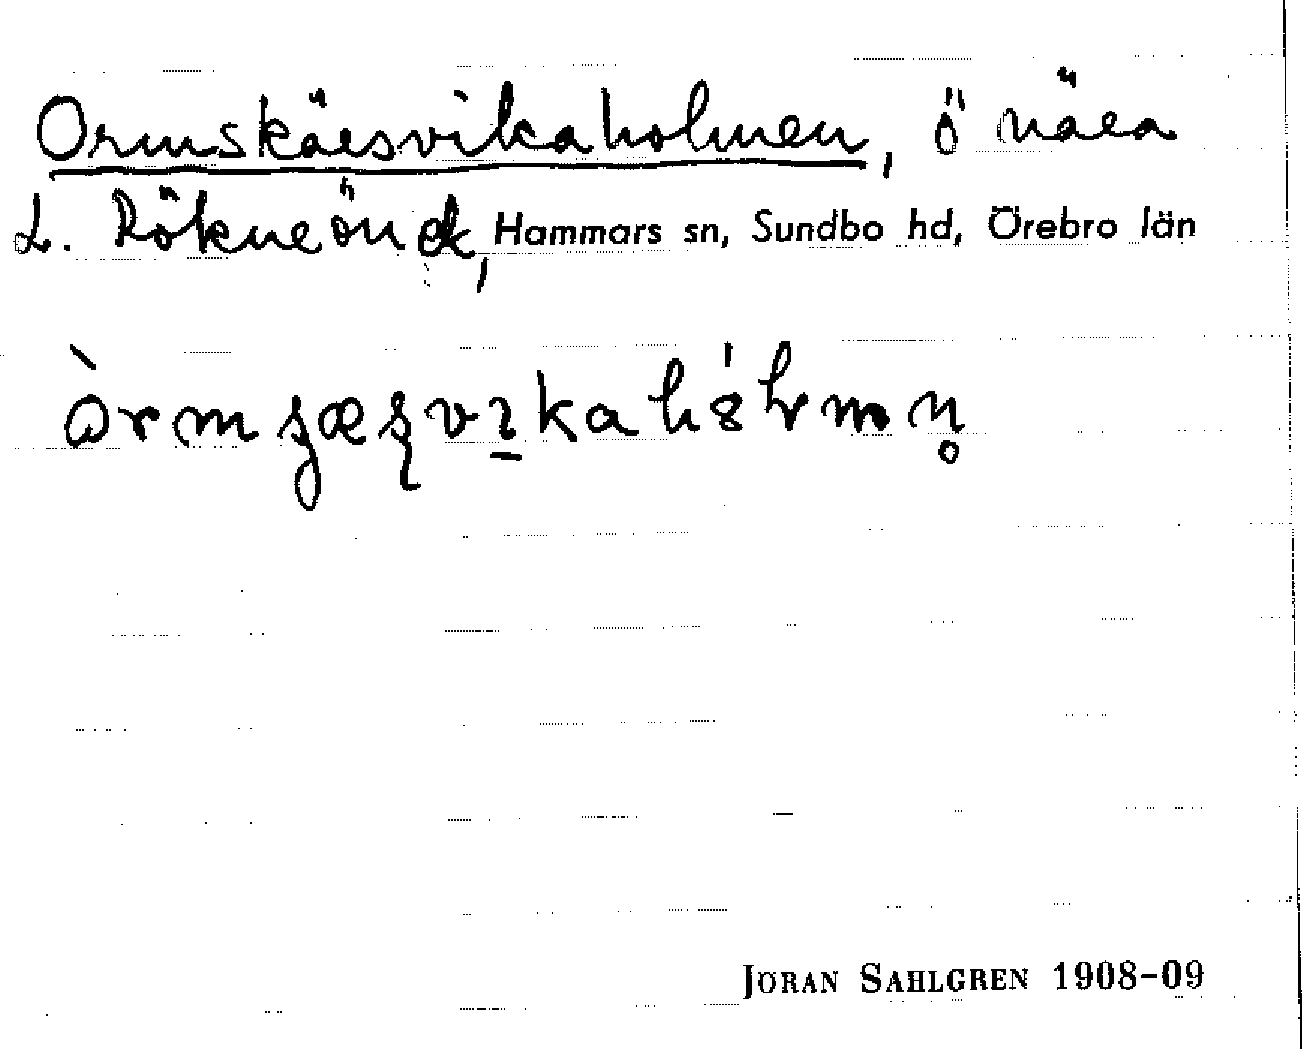 Ormskärsvikaholmen, ö nära
L. Rökneön ck, Hammars sn, Sundbo hd, Örebro län
JÖRAN SAHLGREN 1908-09